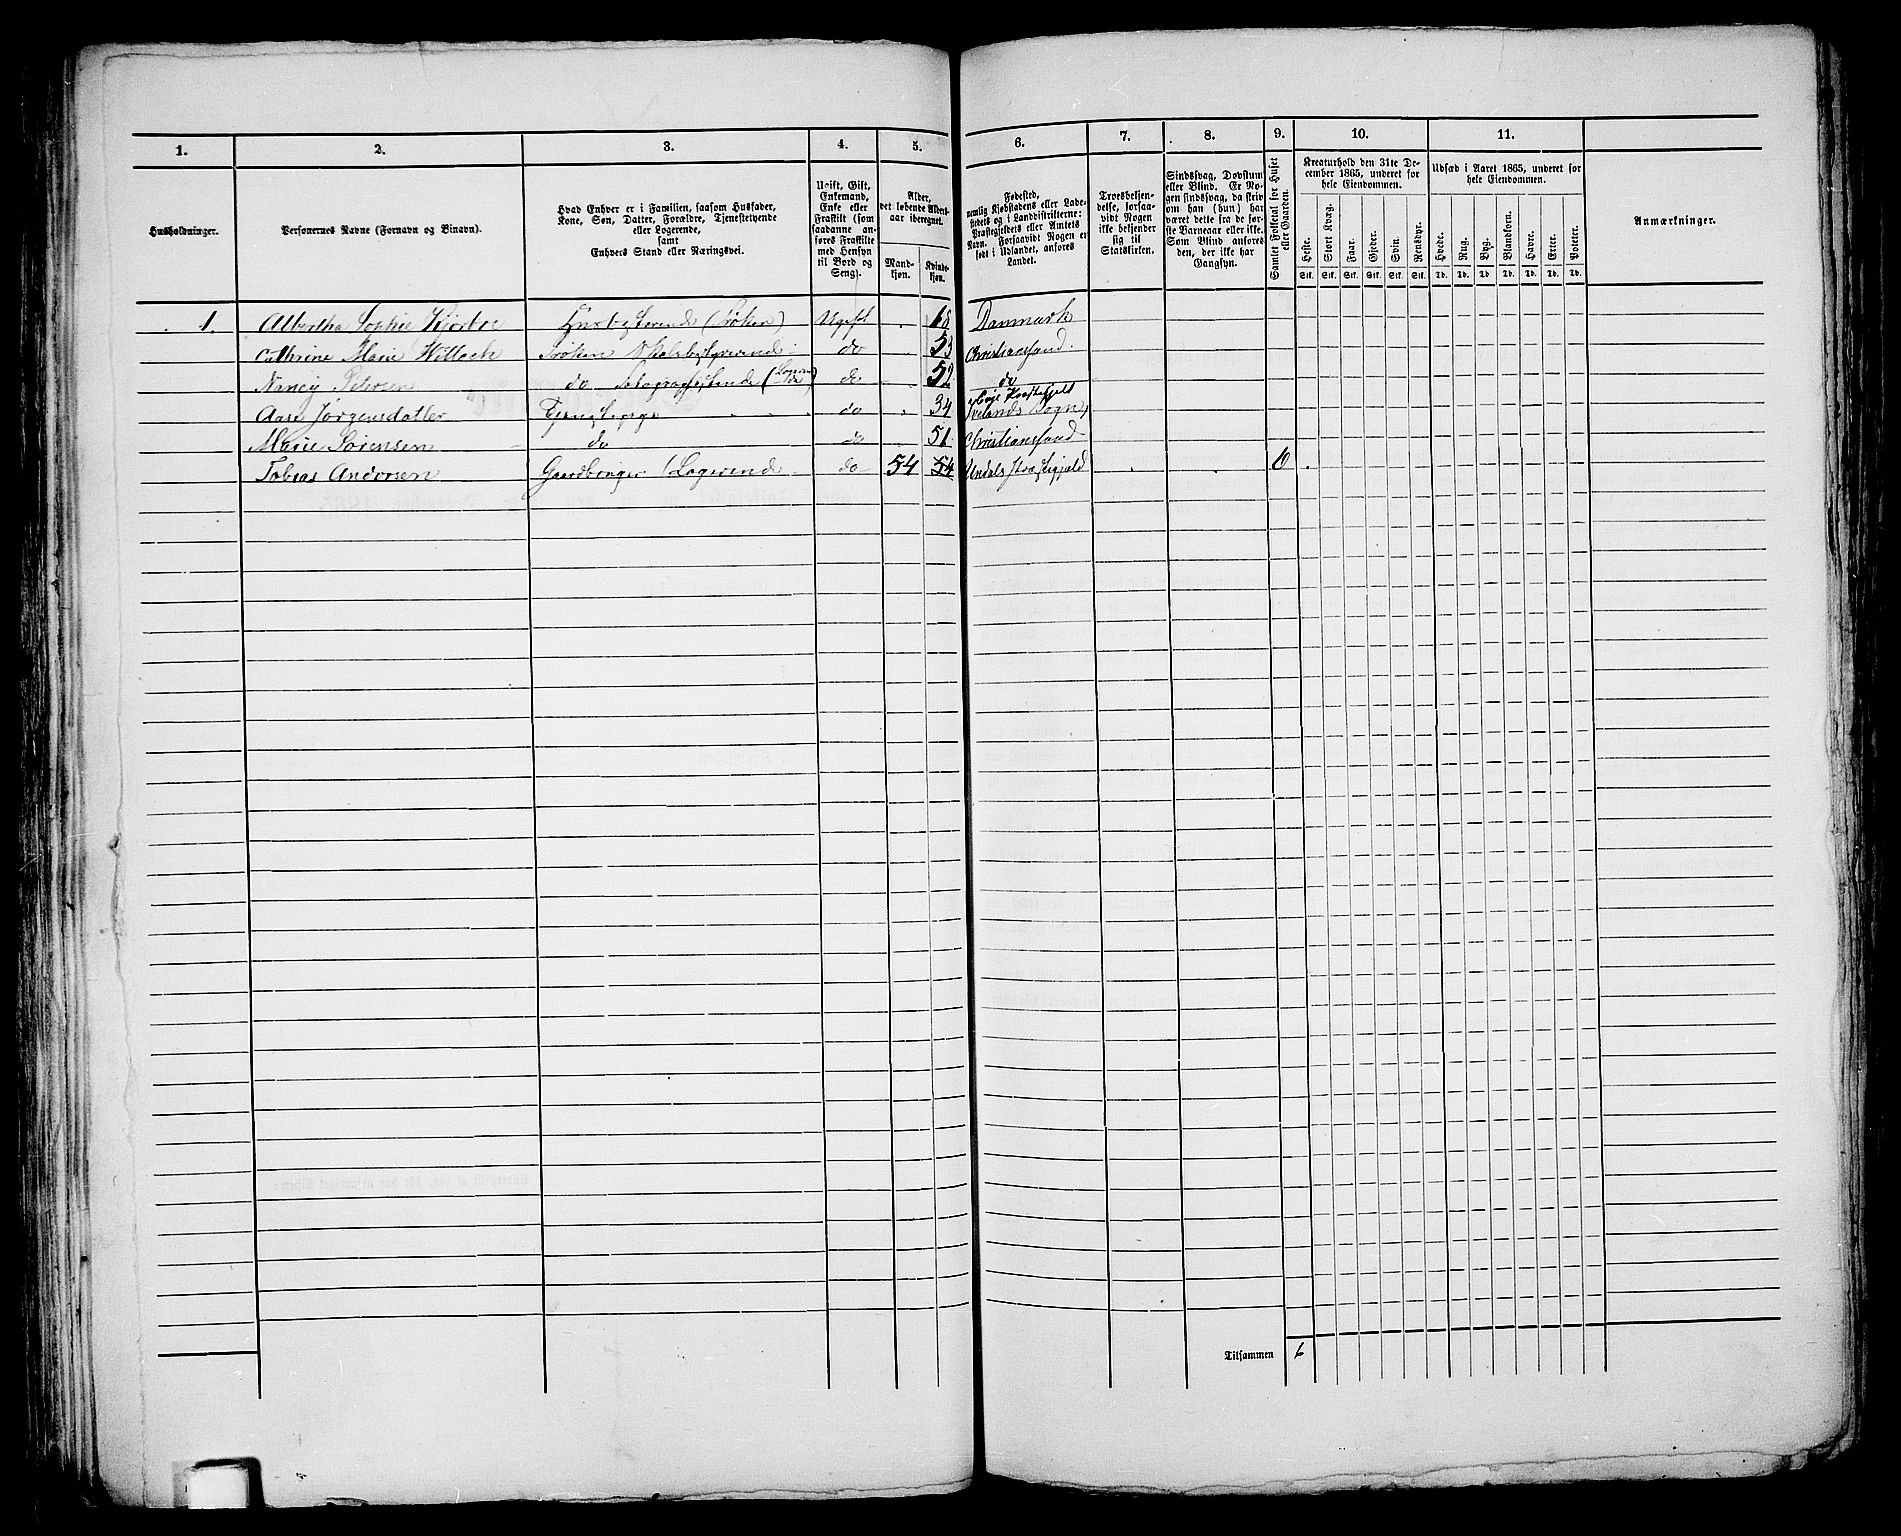 1. 2. 3. 4. 5. 6. 7. 8. 9. 10. 11.
Husholdninger.
Personernes Navne (Fornavn og Binavn).
Hvad Enhver er i Familien, saasom Husfader,
Kone, Søn, Datter, Forældre, Tjenestetyende
eller Logerende,
samt
Enhvers Stand eller Næringsvei.
Ugift, Gift,
Enkemand,
Enke eller
Fraskilt (som
saadanne an-
føres Fraskilte
med Hensyn
til Bord og
Seng).
Alder,
det løbende Alders-
aar iberegnet.
Mand-
kjøn.
Kvinde-
kjøn.
Fødested,
nemlig Kjøbstadens eller Lade-
stedets og i Landdistrikterne:
Præstegjeldets eller Amtets
Navn. Forsaavidt Nogen er
født i Udlandet, anføres
Landet.
Troesbekjen-
delse, forsaa-
vidt Nogen
ikke bekjender
sig til
Statskirken.
Sindssvag, Døvstum
eller Blind. Er No-
gen sindssvag, da skriv
om han (hun) har
været dette fra de før-
ste Barneaar eller ikke.
Som Blind anføres
den, der ikke har
Gangsyn.
Samlet Folketal for Huset
eller Gaarden.
Kreaturhold den 31te De-
cember 1865, underet for
hele Eiendommen.
Heste. Stort Kvæg. Faar. Gjeder. Svin. Rensdyr.
Stk. Stk. Stk. Stk. Stk. Stk.
Udsæd i Aaret 1865, underet for
hele Eiendommen.
Hvede. Rug. Byg. Blandkorn. Havre. Erter. Poteter.
Td. Td. Td. Td. Td. Td. Td.
Anmærkninger.
1. Albertha Sophie Kjørboe Husbestyrende (Frøken) Ugift 68 Danmark
Cathrine Marie Frøken Skolebestyrende do 53 Christianssand.
Nancy Petersen do do 52 do
Aase Jørgensdatter Tjenestepige do 34 Ivelands Sogn,
Marie Sørensen do do 51 Christianssand
Tobias Andersen Gaardbruger (Logerende do 54 54 Undals Præstegjæld 6
Tilsammen 6